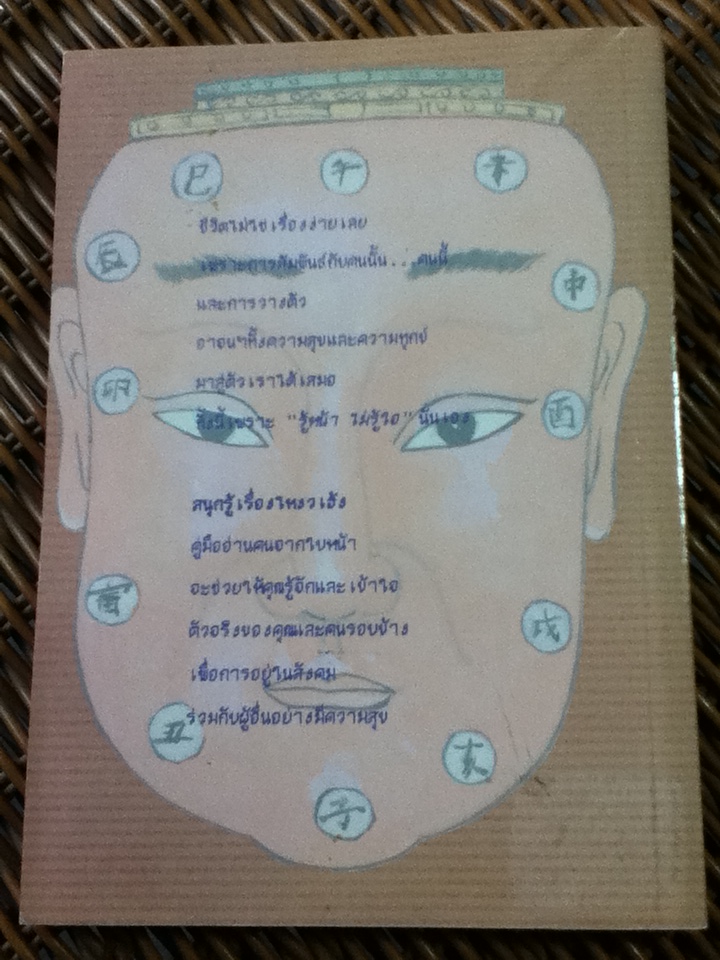 巳 午 未
ชีวิตไม่ใช่เรื่องง่ายเลย
辰
เพราะการสัมพันธ์กับคนนั้น...คนนี้
申
และการวางตัว
อาจนำทั้งความสุขและความทุกข์
มาสู่ตัวเราได้เสมอ
卯
ทั้งนี้เพราะ "รู้หน้า ไม่รู้ใจ" นั่นเอง
酉
สนุกรู้เรื่องโหงวเฮ้ง
คู่มืออ่านคนจากใบหน้า
จะช่วยให้คุณรู้จักและเข้าใจ
寅
ตัวจริงของคุณและคนรอบข้าง
戌
เพื่อการอยู่ในสังคม
ร่วมกับผู้อื่นอย่างมีความสุข
丑
亥
子